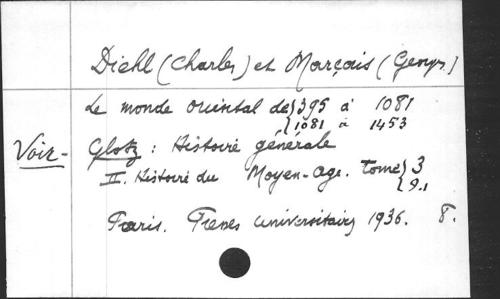 Diehl (Charles) et Marçais (Georges)
Le monde oriental de { 395 à 1081
{ 1081 à 1453
Voir - Glotz : Histoire générale
II. Histoire du Moyen-Age. Tome { 3
{ 9.1
Paris. Presses universitaires 1936. 8.